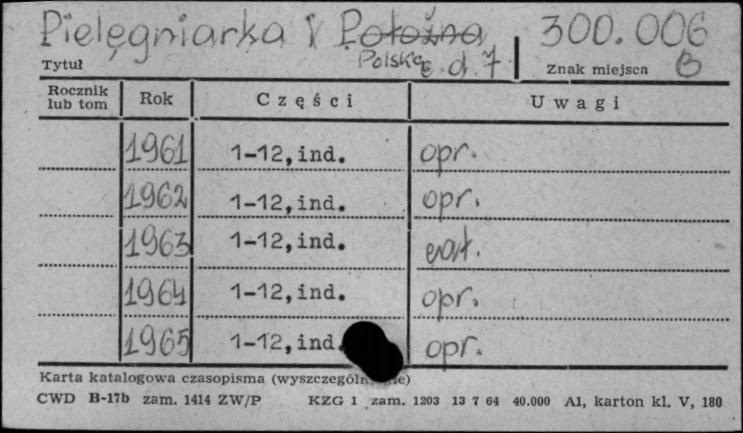 Pielęgniarka i Położna 300.006
Polska c.d. 7
Tytuł Znak miejsca B
Rocznik lub tom Rok Części Uwagi
1961 1-12, ind. opr.
1962 1-12, ind. opr.
1963 1-12, ind.
1964 1-12, ind. opr.
1965 1-12, ind. opr.
Karta katalogowa czasopisma
CWD B-17b zam. 1414 ZW/P KZG 1 zam. 1203 13 7 64 40.000 A1, karton kl. V, 180